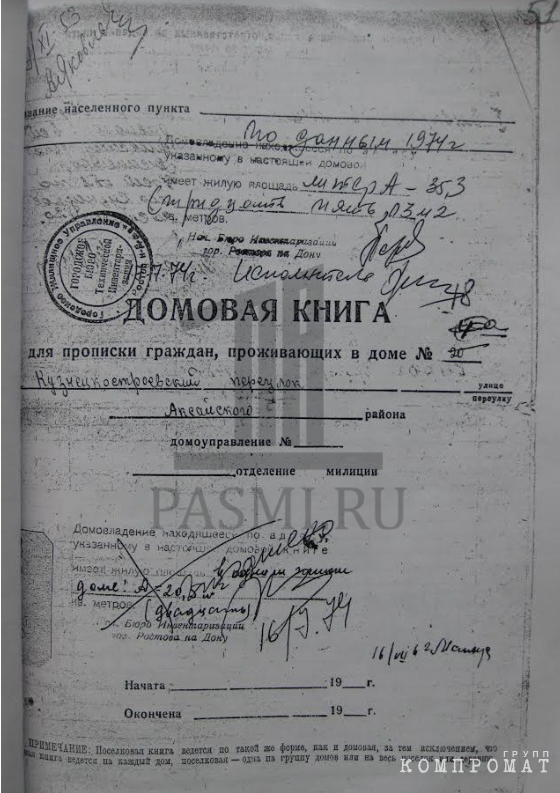 51
XI 53
вание населенного пункта
По данным 1974г
Домовладение находящееся по
указанному в настоящей домовой
имеет жилую площадь литер А - 35,3
(тридцать пять
кв. метров.
Нач. Бюро Инвентаризации
гор. Ростова на Дону
74г Исполнитель
Городское Жилищное Управление
ГОРОДСКОЕ
БЮРО
Технической
Инвентари-
зации
ДОМОВАЯ КНИГА
для прописки граждан, проживающих в доме № 20
Кузнецкостроевский переулок
улице
переулку
Аксайского района
домоуправление №
отделение милиции
PASMI.RU
Домовладение находящееся по ад
указанному в настоящей домовой книге
имеет жилую площадь в
доме: А = 20,
кв. метров (двадцать)
Нач. Бюро Инвентаризации
гор. Ростова на Дону
16/9.74
Начата 19 г.
Окончена 19 г.
ПРИМЕЧАНИЕ: Поселковая книга ведется по такой же форме, как и домовая, за тем исключением, что
книга ведется на каждый дом, поселковая — одна на группу домов или на весь поселок
ГРУПП
КОМПРОМАТ